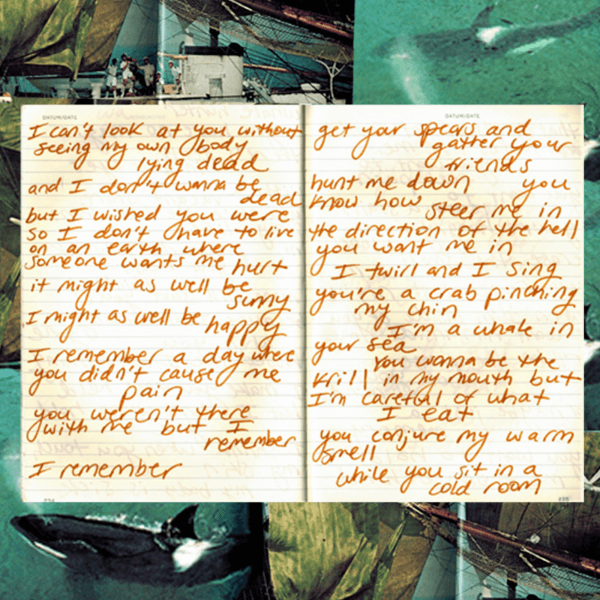 DATUM/DATE
I can't look at you without
seeing my own body
lying dead
and I don't wanna be
dead
but I wished you were
so I don't have to live
on an earth where
someone wants me hurt
it might as well be
sunny
I might as well be happy
I remember a day where
you didn't cause me
pain
you weren't there
with me but I
remember
I remember
234
DATUM/DATE
get your spears and
gatter your
friends
hunt me down you
know how
steer me in
the direction of the hell
you want me in
I twirl and I sing
you're a crab pinching
my chin
I'm a whale in
your sea
you wanna be the
krill in my mouth but
I'm careful of what
I eat
you conjure my warm
smell
while you sit in a
cold room
235